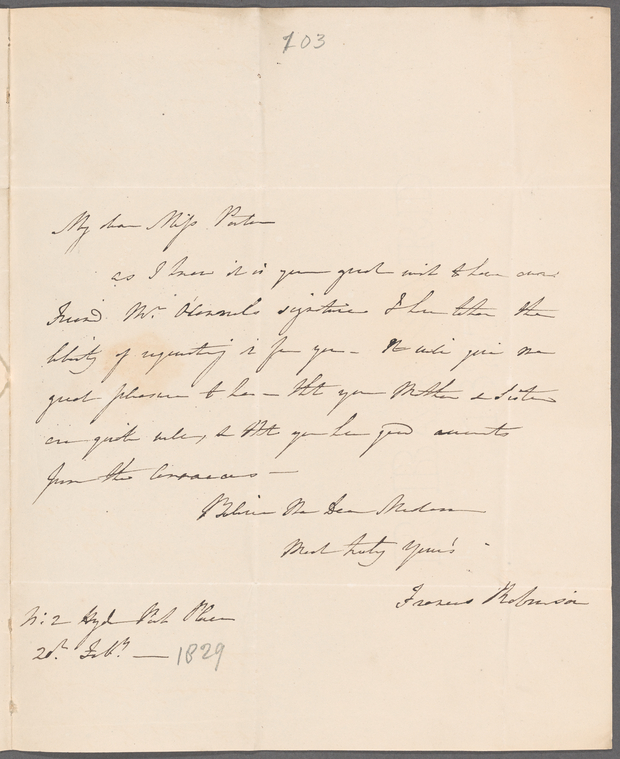 103
My dear Miss Porter
as I know it is your great wish to have our
Friend Mr. O'Connel's signature I have taken the
liberty of requesting it for you – It will give me
great pleasure to hear – that your Mother & Sister
are quite well, & that you have good accounts
from the Carraccas –
Believe Me Dear Madam
Most truly Yours
Frances Robinson
No: 2 Hyde Park Place
20th Feby. — 1829